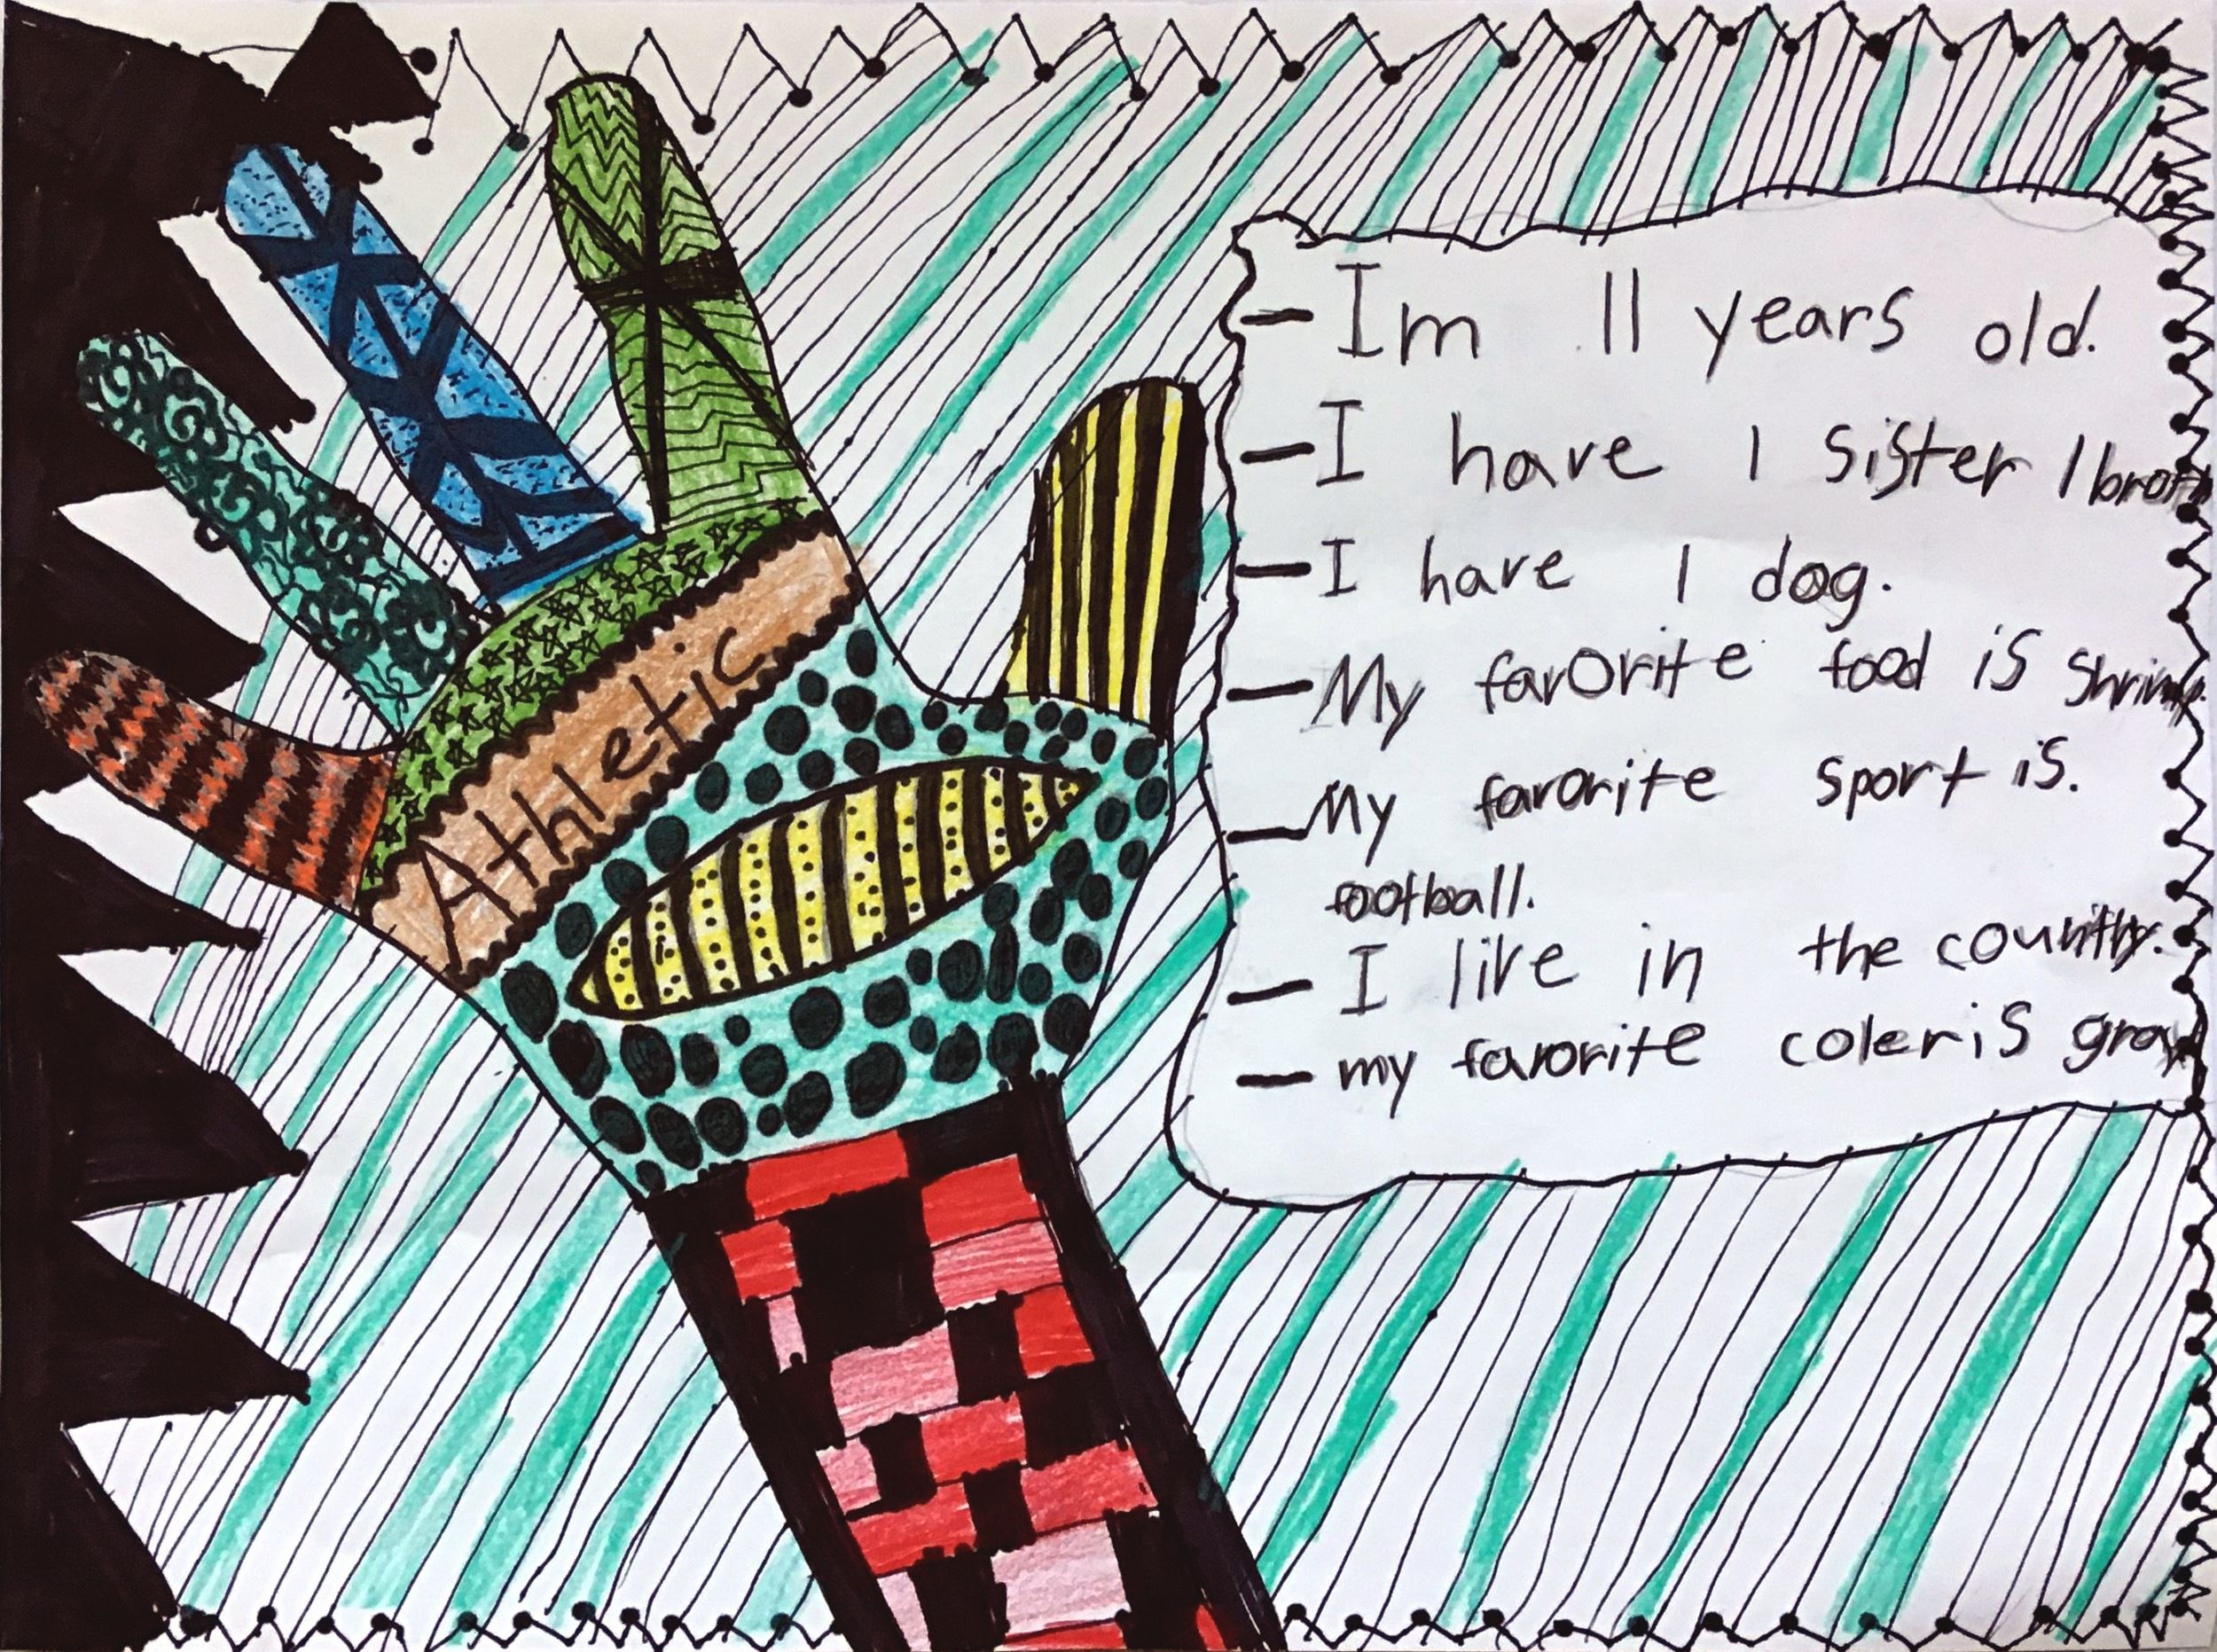 Athletic
- Im 11 years old.
- I have 1 sister 1 broth
- I have 1 dog.
- My favorite food is shrimp.
- My favorite sport is.
football.
- I live in the country.
- my favorite coler is gray